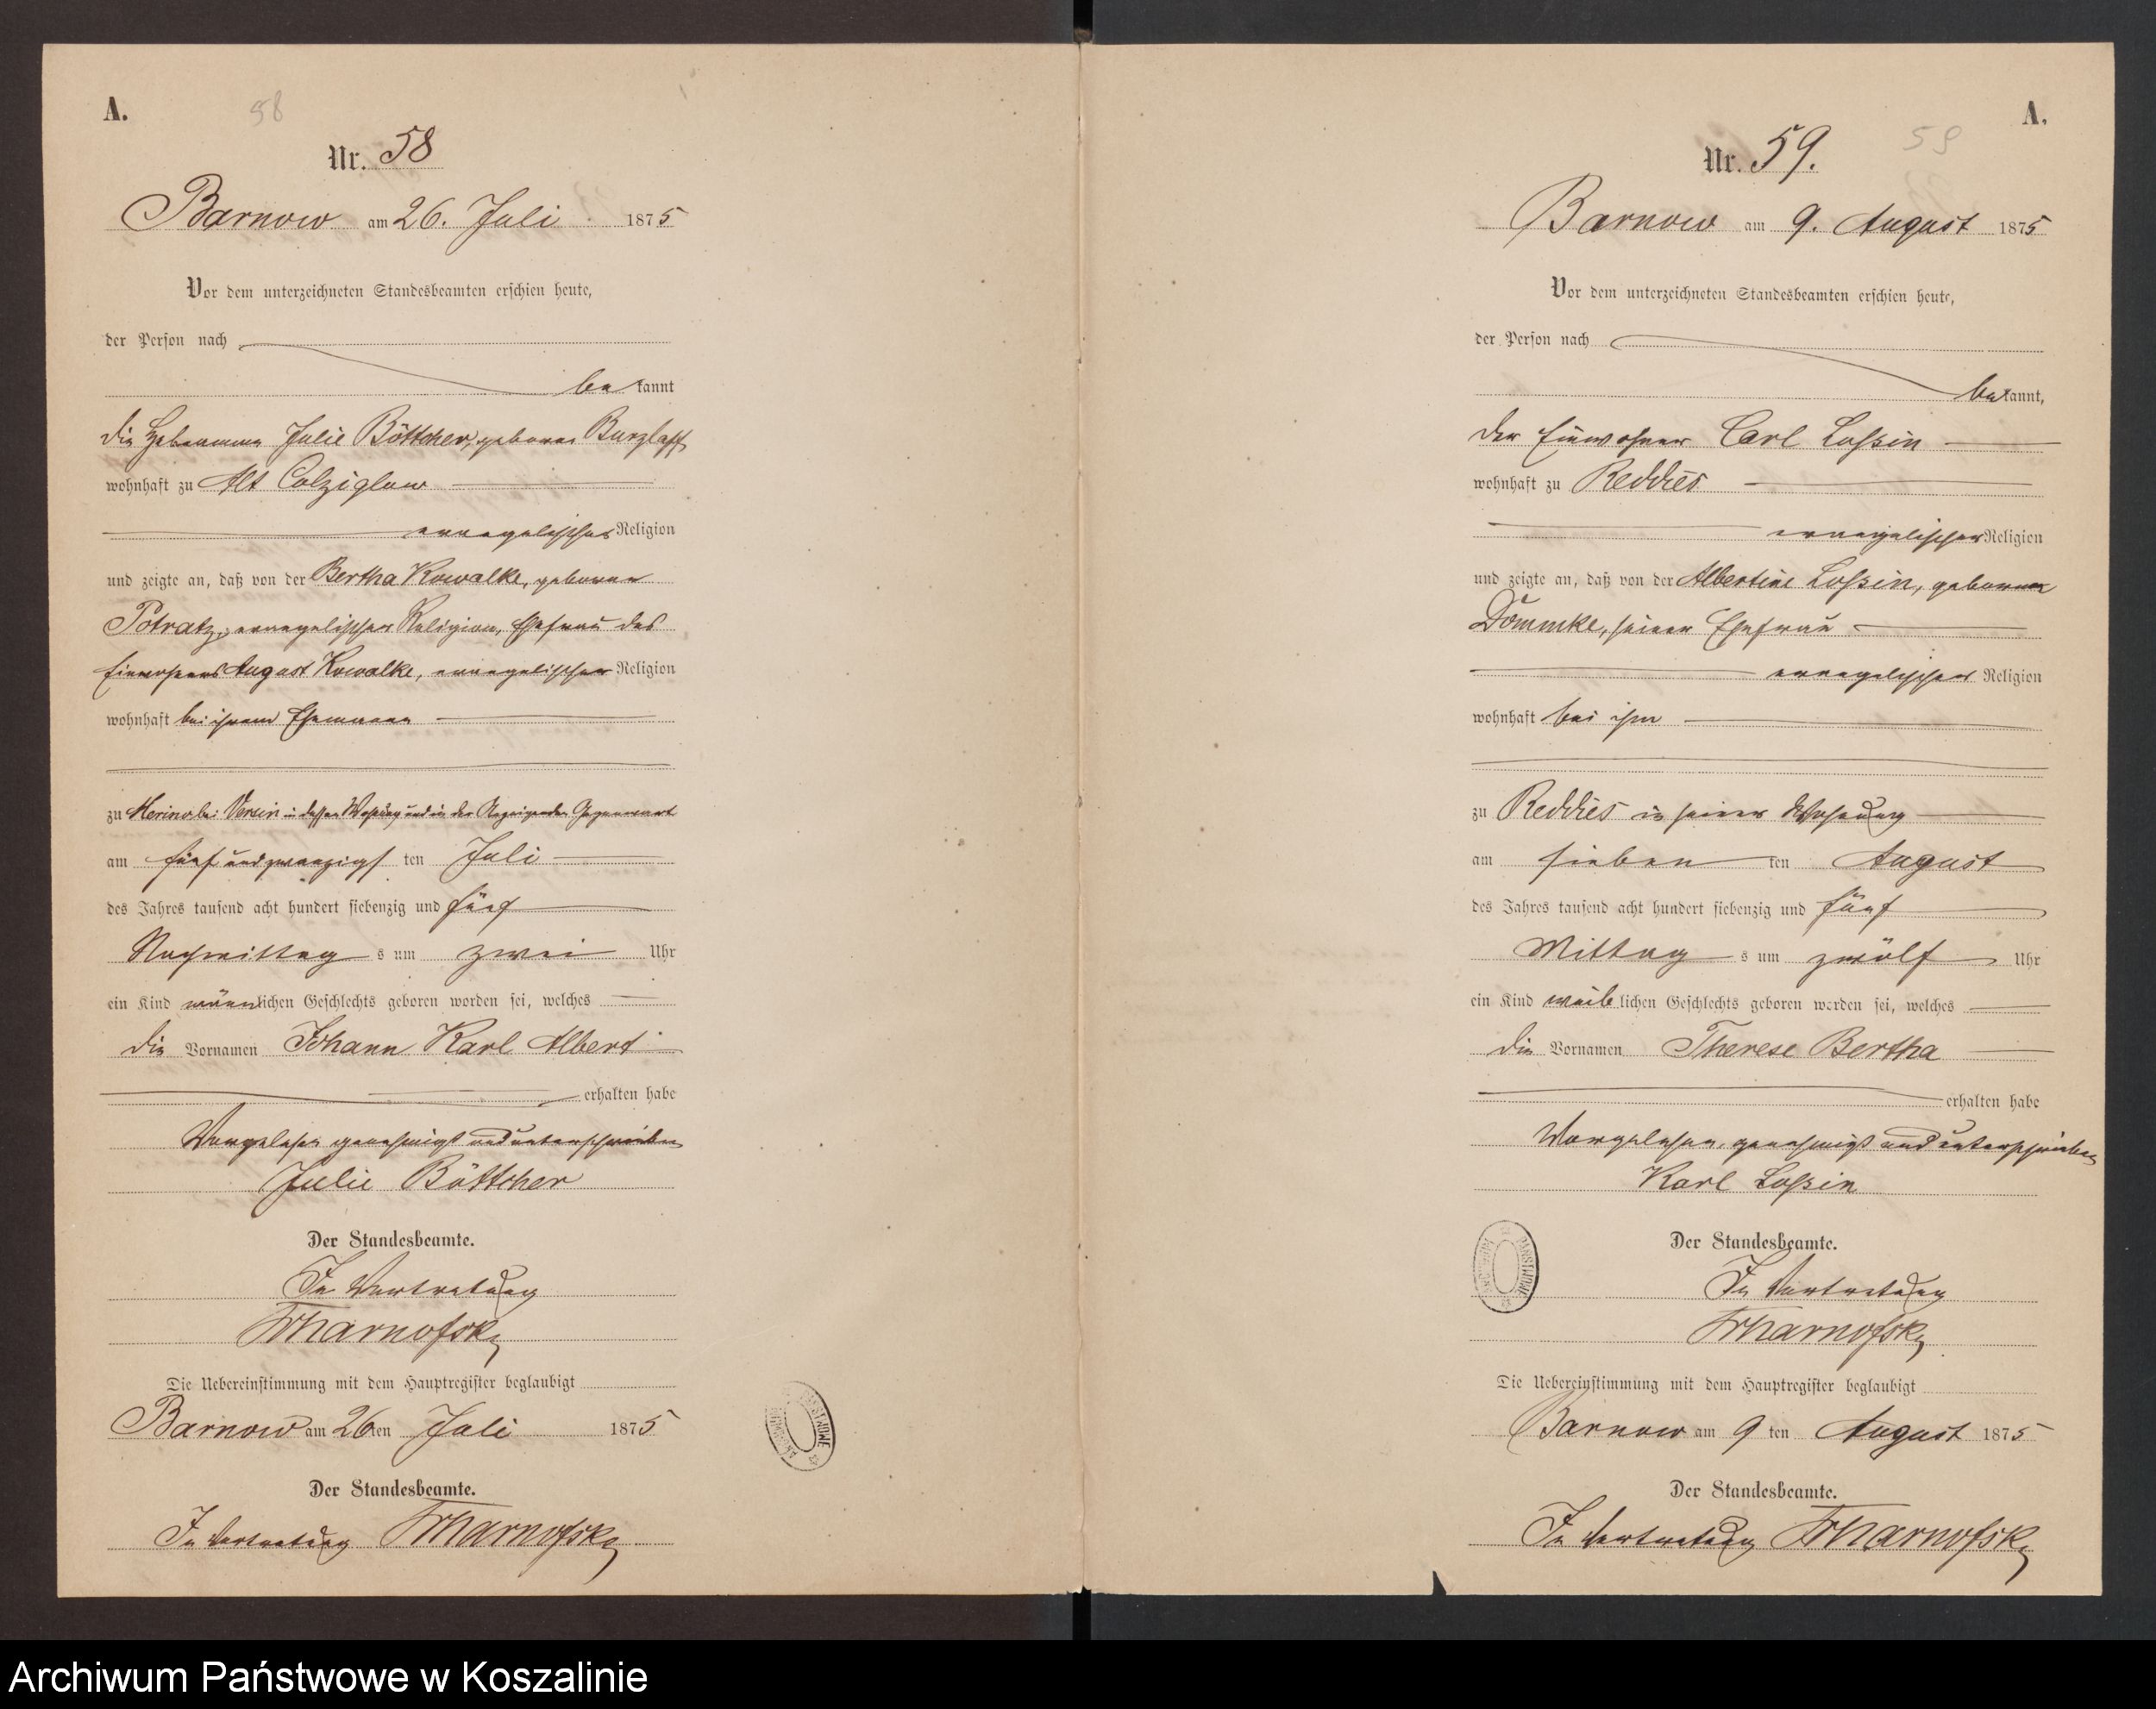 A.
58
Nr. 58
Barnow am 26. Juli 1875
Vor dem unterzeichneten Standesbeamten erschien heute,
der Person nach
bekannt
die Hebamme Julie Böttcher, geborne Burzlaff
wohnhaft zu Alt Colziglow
evangelischer Religion
und zeigte an, daß von der Bertha Kowalke, geborenen
Potratz, evangelischer Religion, Ehefrau des
Einwohners August Kowalke, evangelischer Religion
wohnhaft bei ihrem Ehemanne
zu Versin in dessen Wohnung und in der Anzeigenden Gegenwart
am fünf und zwanzigsten Juli
des Jahres tausend acht hundert siebenzig und fünf
Nachmittags um zwei Uhr
ein Kind männlichen Geschlechts geboren worden sei, welches
die Vornamen Johann Karl Albert
erhalten habe
Vorgelesen genehmigt und unterschrieben
Julie Böttcher
Der Standesbeamte.
In Vertretung
Die Uebereinstimmung mit dem Hauptregister beglaubigt
Barnow am 26ten Juli 1875
Der Standesbeamte.
In Vertretung
A.
59
Nr. 59.
Barnow am 9. August 1875
Vor dem unterzeichneten Standesbeamten erschien heute,
der Person nach
bekannt,
der Einwohner Carl Loßzin
wohnhaft zu Reddies
evangelischer Religion
und zeigte an, daß von der Albertine Loßzin, geborenen
Dömmke, seiner Ehefrau
evangelischer Religion
wohnhaft bei ihm
zu Reddies in seiner Wohnung
am siebenten August
des Jahres tausend acht hundert siebenzig und fünf
Mittags um zwölf Uhr
ein Kind weiblichen Geschlechts geboren worden sei, welches
die Vornamen Therese Bertha
erhalten habe
Vorgelesen, genehmigt und unterschrieben
Karl Loßzin
Der Standesbeamte.
In Vertretung
Die Uebereinstimmung mit dem Hauptregister beglaubigt
Barnow am 9ten August 1875
Der Standesbeamte.
In Vertretung
Archiwum Państwowe w Koszalinie